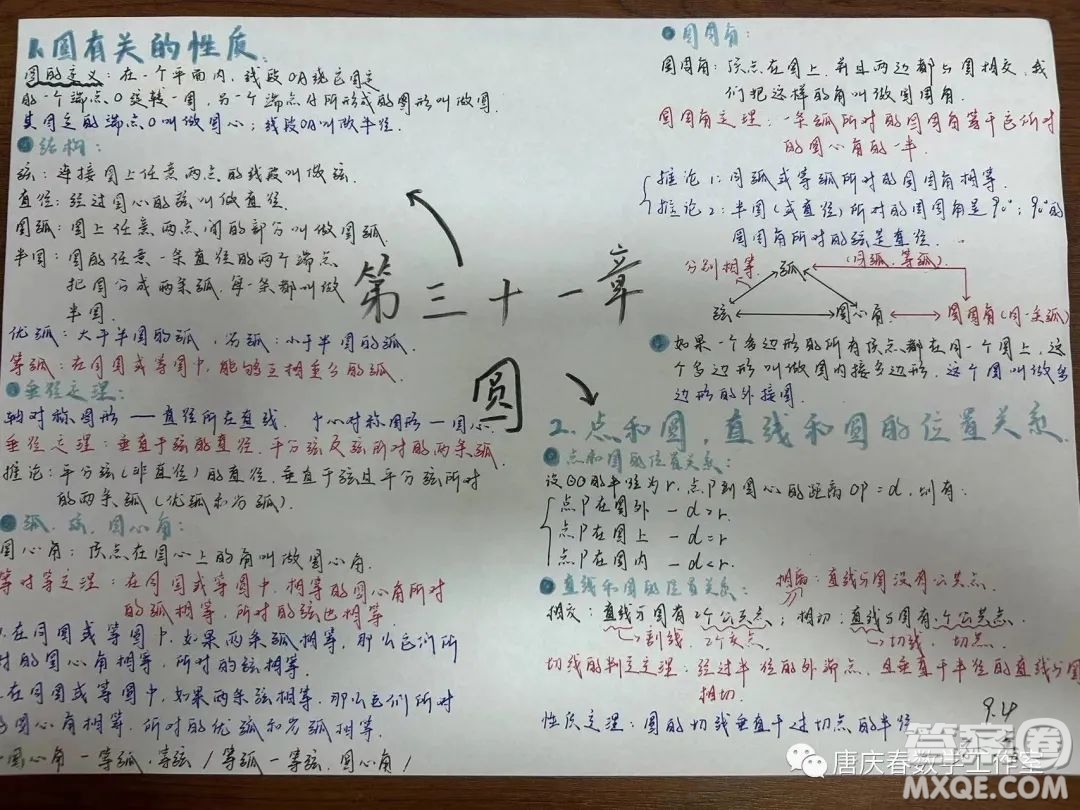 1.圆有关的性质.
圆的定义：在一个平面内，线段OA绕它固定
的一个端点O旋转一周，另一个端点A所形成的图形叫做圆.
其固定的端点O叫做圆心；线段OA叫做半径.
结构：
弦：连接圆上任意两点的线段叫做弦.
直径：经过圆心的弦叫做直径.
圆弧：圆上任意两点间的部分叫做圆弧.
半圆：圆的任意一条直径的两个端点
把圆分成两条弧，每一条都叫做
半圆.
优弧：大于半圆的弧，劣弧：小于半圆的弧.
等弧：在同圆或等圆中，能够互相重合的弧.
垂径定理：
轴对称图形 — 直径所在直线. 中心对称图形 — 圆心
垂径定理：垂直于弦的直径，平分弦及弦所对的两条弧.
推论：平分弦(非直径)的直径，垂直于弦且平分弦所对
的两条弧(优弧和劣弧).
弧、弦、圆心角：
圆心角：顶点在圆心上的角叫做圆心角.
等对等定理：在同圆或等圆中，相等的圆心角所对
的弧相等，所对的弦也相等.
.在同圆或等圆中，如果两条弧相等，那么它们所
对的圆心角相等，所对的弦相等.
.在同圆或等圆中，如果两条弦相等，那么它们所对
的圆心角相等，所对的优弧和劣弧相等.
圆心角 — 等弧，等弦 / 等弧 — 等弦，圆心角 /
第三十一章
圆
圆周角：
圆周角：顶点在圆上，并且两边都与圆相交，我
们把这样的角叫做圆周角.
圆周角定理：一条弧所对的圆周角等于它所对
的圆心角的一半.
推论1：同弧或等弧所对的圆周角相等.
推论2：半圆(或直径)所对的圆周角是90°；90°的
圆周角所对的弦是直径.
分别相等. 弧 (同弧、等弧).
弦 圆心角 圆周角(同一条弧)
如果一个多边形的所有顶点都在同一个圆上，这
个多边形叫做圆内接多边形，这个圆叫做多
边形的外接圆.
2.点和圆，直线和圆的位置关系.
点和圆的位置关系：
设⊙O的半径为r，点P到圆心的距离OP=d，则有：
点P在圆外 — d>r.
点P在圆上 — d=r.
点P在圆内 — d<r.
直线和圆的位置关系： 相离：直线与圆没有公共点.
相交：直线与圆有2个公共点；相切：直线与圆有一个公共点.
割线 2个交点 切线 切点
切线的判定定理：经过半径的外端点，且垂直于半径的直线与圆
相切.
性质定理：圆的切线垂直于过切点的半径
9.4
答案圈
唐庆春数学工作室